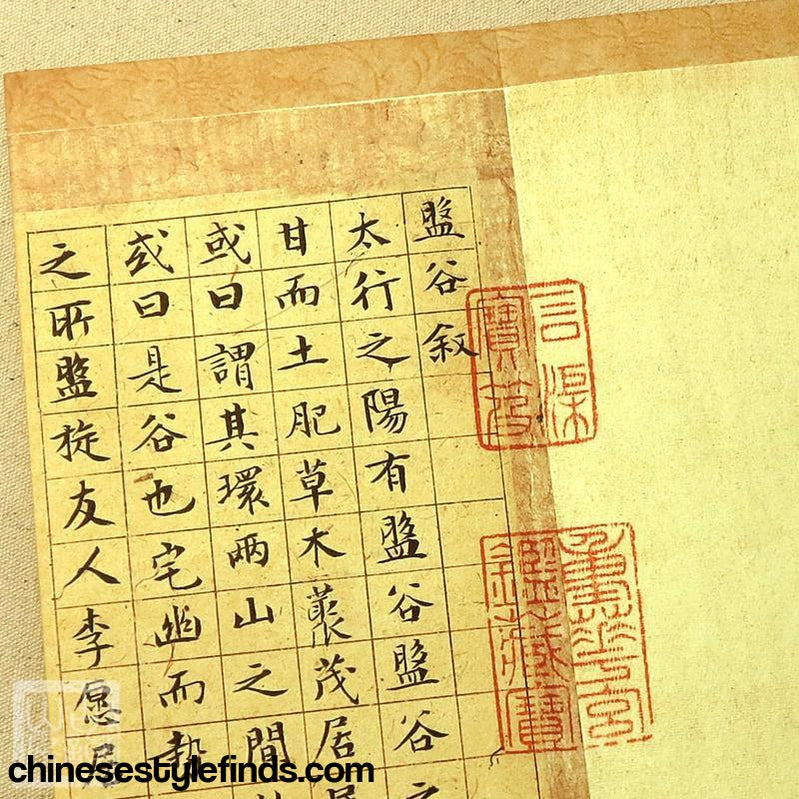 盤谷叙
太行之陽有盤谷盤谷之
甘而土肥草木藂茂居
或曰謂其環兩山之間
或曰是谷也宅幽而
之所盤旋友人李愿居
石渠寶笈
重華宮鑑藏寶
chinesestylefinds.com